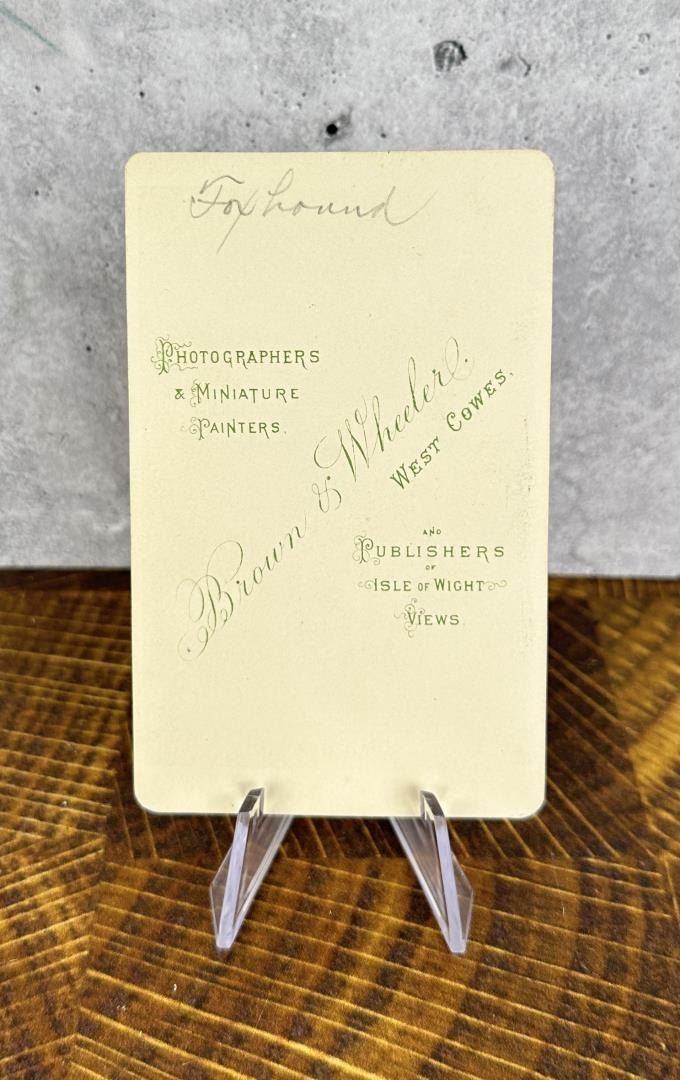 Foxhound
PHOTOGRAPHERS
& MINIATURE
PAINTERS.
Brown & Wheeler.
WEST COWES.
AND
PUBLISHERS
OF
ISLE OF WIGHT
VIEWS.